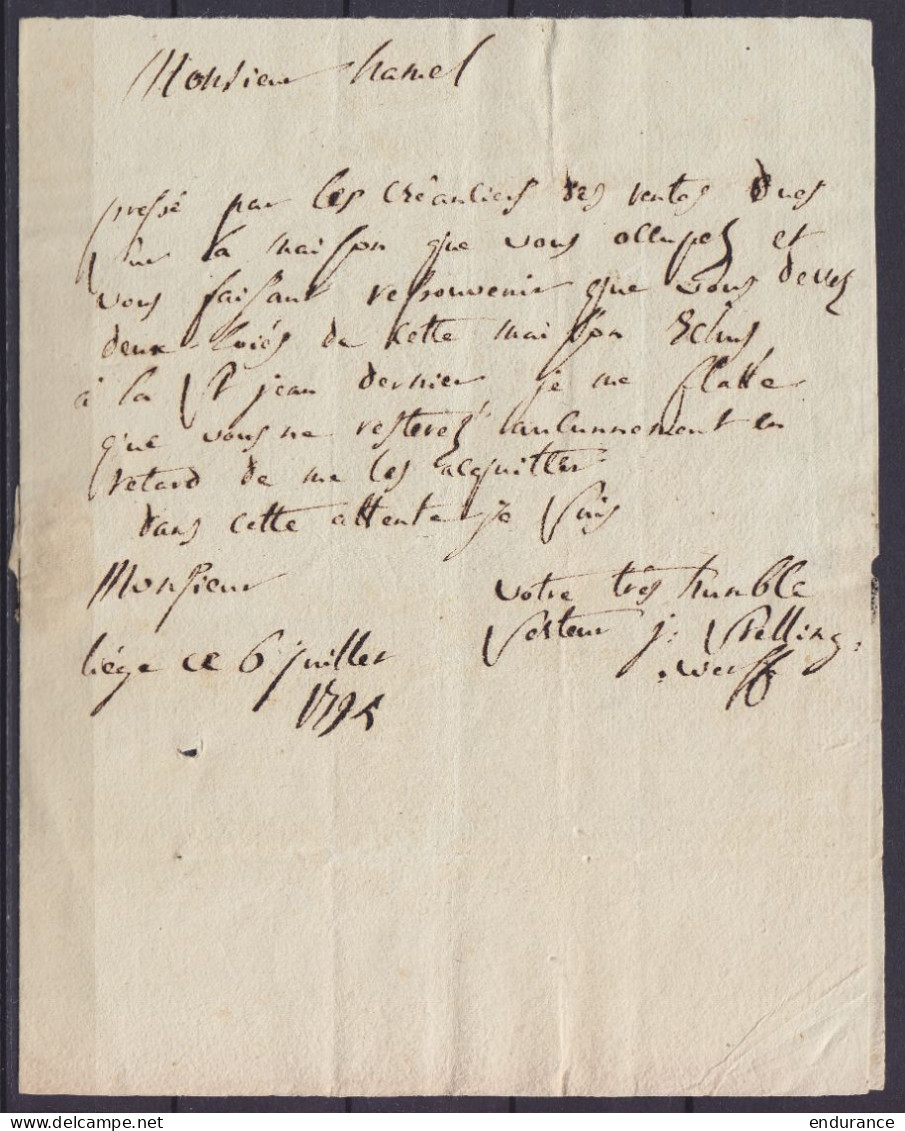 Monsieur hamel
pressé par les Créanciers des rentes dues
sur la maison que vous occupez et
vous faisant ressouvenir que vous devez
deux loiés de cette maison Echus
à la St jean dernier je me flatte
que vous ne resterez aucunnement en
retard de me les acquitter
dans cette attente je suis
Monsieur votre très humble
serteur j:
liége ce 6 juillet
1795
endurance